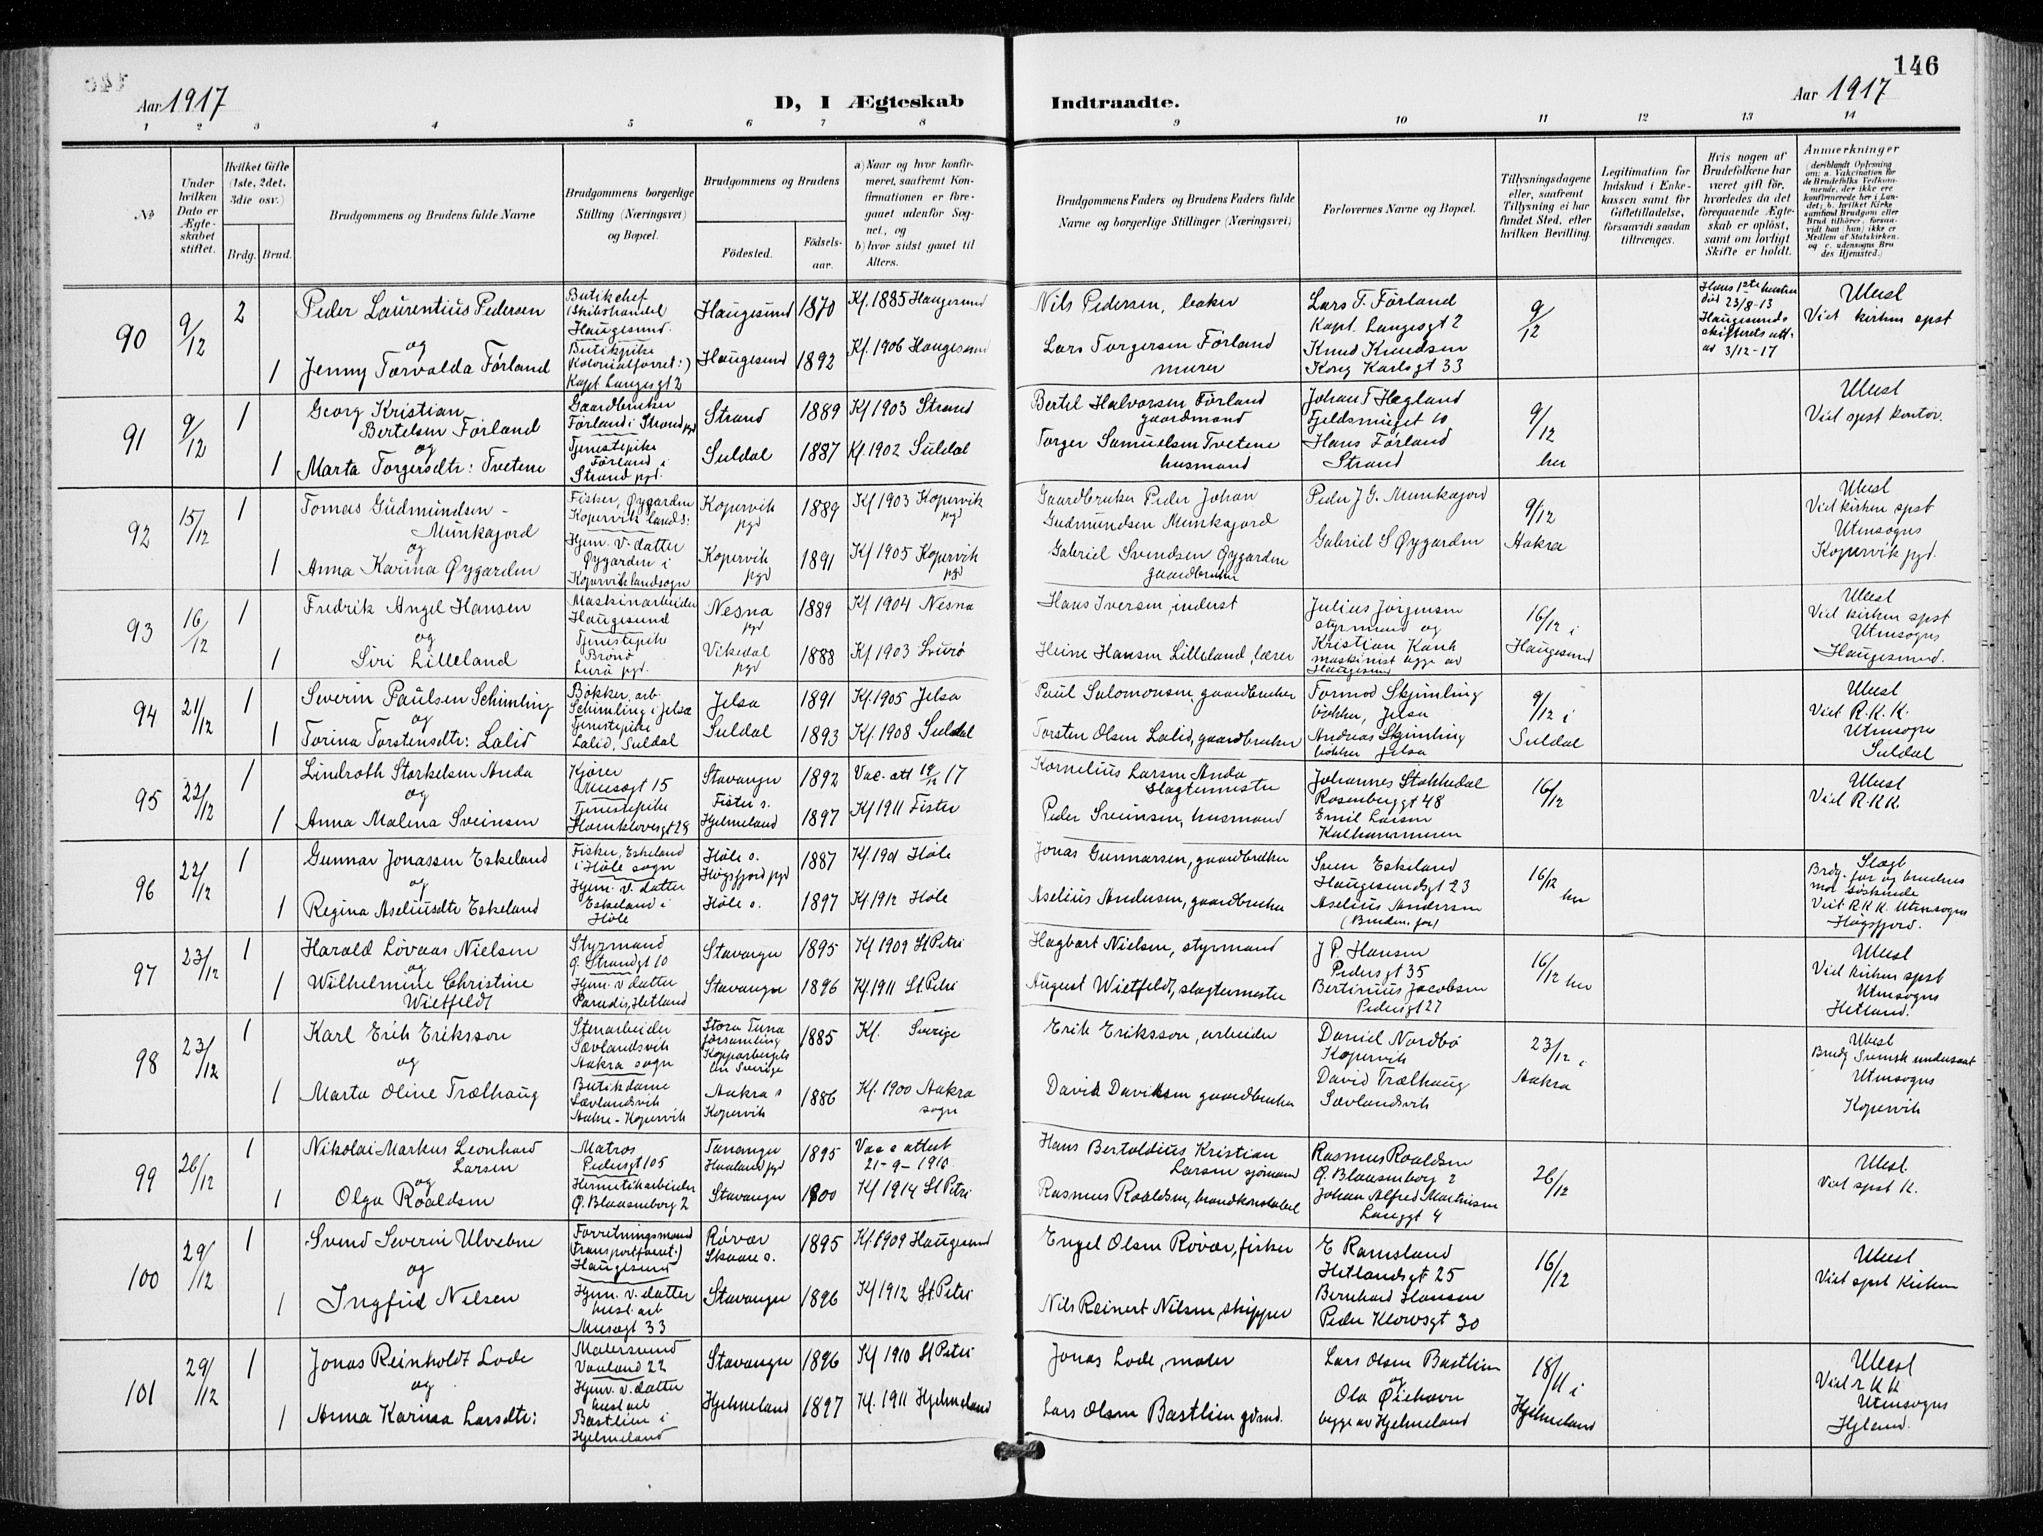 146
Aar 1917
D, I Ægteskab
Indtraadte.
Aar 1917
1 2 3 4 5 6 7 8 9 10 11 12 13 14
№
Under hvilken Dato er Ægteskabet stiftet.
Hvilket Gifte (1ste, 2det, 3die osv.)
Brdg. Brud.
Brudgommens og Brudens fulde Navne
Brudgommens borgerlige Stilling (Næringsvei) og Bopæl.
Brudgommens og Brudens
Fødested.
Fødselsaar.
a) Naar og hvor konfirmeret, saafremt Konfirmationen er foregaaet udenfor Sognet, og
b) hvor sidst gaaet til Alters.
Brudgommens Faders og Brudens Faders fulde Navne og borgerlige Stillinger (Næringsvei)
Forlovernes Navne og Bopæl.
Tillysningsdagene eller, saafremt Tillysning ei har fundet Sted, efter hvilken Bevilling.
Legitimation for Indskud i Enkekassen samt for Giftetilladelse, forsaavidt saadan tiltrænges.
Hvis nogen af Brudefolkene har været gift før, hvorledes da det foregaaende Ægteskab er opløst, samt om lovligt Skifte er holdt.
Anmærkninger
(deriblandt Oplysning om: a. Vakcination for de Brudefolks Vedkommende, der ikke ere konfirmerede her i Landet; b. hvilket Kirkesamfund Brudgom eller Brud tilhører, forsaavidt han (hun) ikke er Medlem af Statskirken, og c. udensogns Brudes Hjemsted.)
90
9/12
2
Peder Laurentius Pedersen
Butikchef
(Skibshandel
Haugesund.
Haugesund 1870 Kf. 1885 Haugesund
Nils Pedersen, baker
Lars T. Førland
Kapt. Langesgt 2
9/12
Hans 1ste hustru
død 23/8-13
Haugesunds
skifterets att.
av 3/12-17
Ubesl
Viet kirken spst
og
1 Jenny Torvalda Førland
Butikpike
Kolonialforret:)
Kapt Langesgt 2
Haugesund 1892 Kf. 1906 Haugesund
Lars Torgersen Førland
murer
Knud Knudsen
Kong Karlsgt 33
91
9/12
1
Georg Kristian
Bertelsen Førland
Gaardbruker
Førland i Strand pgd
Strand 1889 Kf 1903 Strand
Bertel Halvorsen Førland
gaardmand
Johan T Hegland
Fjeldsmuget 10
9/12
her
Ubesl
Viet spst kontor.
og
1 Marta Torgersdtr: Tvetene
Tjenestepike
Førland i
Strand pgd.
Suldal 1887 Kf. 1902 Suldal
Torger Samuelsen Tvetene
husmand
Hans Førland
Strand
92
15/12
1
Tomas Gudmundsen -
Munkajord
Fisker, Øygarden
Kopervik lands:
Kopervik
pgd
1889 Kf 1903 Kopervik
pgd
Gaardbruker Peder Johan
Gudmundsen Munkajord
Peder J G. Munkajord
9/12
Aakra
Ubesl
Viet kirken spst
Utensogns
Kopervik pgd.
og
1 Anna Karina Øygarden
Hjem. v. datter
Øygarden i
Koperviklandsogn
Kopervik
pgd
1891 Kf 1905 Kopervik
pgd
Gabriel Svendsen Øygarden
gaardbruker
Gabriel S Øygarden
93
16/12
1
Fredrik Angel Hansen
Maskinarbeider
Haugesund
Nesna
pgd
1889 Kf 1904 Nesna
Hans Iversen, inderst
Julius Jörgensen
styrmand og
16/12 i
Haugesund
Ubesl
Viet kirken spst
Utensogns
Haugesund.
og
1 Siri Lilleland
Tjenestepike
i
Vikedal
pgd
1888 Kf 1903
Heine Hansen Lilleland, lærer
Kristian
maskinist begge av
Haugesund
94
21/12
1
Severin Paulsen Schimling
Bøkker, arb.
Schimling i Jelsa
Jelsa 1891 Kf. 1905 Jelsa
Paul Salomonsen, gaardbruker
Tormod Skjimling
bøkker, Jelsa
9/12 i
Suldal
Ubesl
Viet R.K.K.
Utensogns
Suldal
og
1 Torina Torstensdtr: Lalid
Tjenestepike
Lalid, Suldal
Suldal 1893 Kf. 1908 Suldal
Torsten Olsen Lalid, gaardbruker
Andreas Skjimling
bøkker Jelsa
95
22/12
1
Lindroth Storkelsen Anda
Kjører
15
Stavanger 1892 Vac. att 17
Kornelius Larsen Anda
Slagtermester
Johannes Stokkedal
Rosenberggt 48
16/12
Ubesl
Viet R.K.K.
og
1 Anna Malena Sveinsen
Tjenestepike
28
Fister s.
Hjelmeland
1897 Kf 1911 Fister
Peder Sveinsen, husmand
Emil Larsen
Kalhammeren
96
22/12
1
Gunnar Jonassen Eskeland
Fisker, Eskeland
i Høle sogn
Høle s.
Høgsfjord pgd
1887 Kf. 1901 Høle
Jonas Gunnarsen, gaardbruker
Sven Eskeland
Haugesundsgt 23
16/12
her
Slægt
Brdg. far og brudens
mor søskende
Viet R.K.K. Utensogns
Høgsfjord.
og
1 Regina Aseliusdtr Eskeland
Hjem. v. datter
Eskeland i
Høle
Høle s. 1897 Kf 1912 Høle
Aselius Andersen, gaardbruker
Aselius Andersen
(Brudens far)
97
23/12
1
Harald Lovaas Nielsen
Styrmand
Ø. Strandgt 10
Stavanger 1895 Kf 1909 St Petri
Hagbart Nielsen, styrmand
J P. Hansen
Pedersgt 35
16/12 her
Ubesl
Viet kirken spst
Utensogns
Hetland.
og
1 Wilhelmine Christine
Wietfeldt
Hjem. v datter
Paradis, Hetland
Stavanger 1896 Kf 1911 St. Petri
August Wietfeldt, slagtermester
Bertinius Jacobsen
Pedersgt 27
98
23/12
1
Karl Erik Eriksson
Stenarbeider
Sævlandsvik
Aakra sogn
Stora Tuna
församling
Kopparbergs
län Sverige
1885 Kf. Sverige
Erik Eriksson, arbeider
Daniel Nordbø
Kopervik
23/12 i
Aakra
Ubesl
Brudg Svensk undersaat
Utensogns
Kopervik
og
1 Marta Oline Trælhaug
Butikdame
Sævlandsvik
Aakra - Kopervik
Aakra s
Kopervik
1886 Kf. 1900 Aakra
sogn
David Davidsen gaardbruker
David Trælhaug
Sævlandsvik
99
26/12
1
Nikolai Markus Leonhard
Larsen
Matros
Pedersgt 105
Tananger
Haaland pgd
1895 Vacc attest
21-9-1910
Hans Bertoldius Kristian
Larsen sjømand
Rasmus Roaldsen
Ø. Blaasenborg 2
26/12
Ubesl.
Viet spst K.
og
1 Olga Roaldsen
Hermetikarbeider
Ø. Blaasenborg 2
Stavanger 1900 Kf 1914 St Petri
Rasmus Roaldsen, brandkonstabel
Johan Alfred Martinsen
Langgt 4
100
29/12
1
Svend Severin Ulvebne
Forretningsmand
(Transportforret.)
Haugesund
Røvær
Skaare s.
1895 Kf. 1909 Haugesund
Engel Olsen Røvær, fisker
E Ramsland
Hetlandsgt 25
16/12
Ubesl
Viet spst Kirken
og
1 Ingfrid Nilsen
Hjem. v. datter
husl. arb
Musegt 33
Stavanger 1896 Kf 1912 St. Petri
Nils Reinert Nilsen, skipper
Bernhard Hansen
Peder Klowsgt 30
101
29/12
1
Jonas Reinholdt Lode
Malersvend
Vaaland 22
Stavanger 1896 Kf 1910 St Petri
Jonas Lode, maler
Lars Olsen Bastlien
og
18/11 i
Hjelmeland
Ubesl
Viet R K K
Utensogns
Hjelmel.
og
1 Anna Karina Larsdtr:
Hjem. v. datter
husl arb
Bastlien i
Hjelmeland
Hjelmeland 1897 Kf. 1911 Hjelmeland
Lars Olsen Bastlien gdmd.
Ola Øiehavn
begge av Hjelmeland